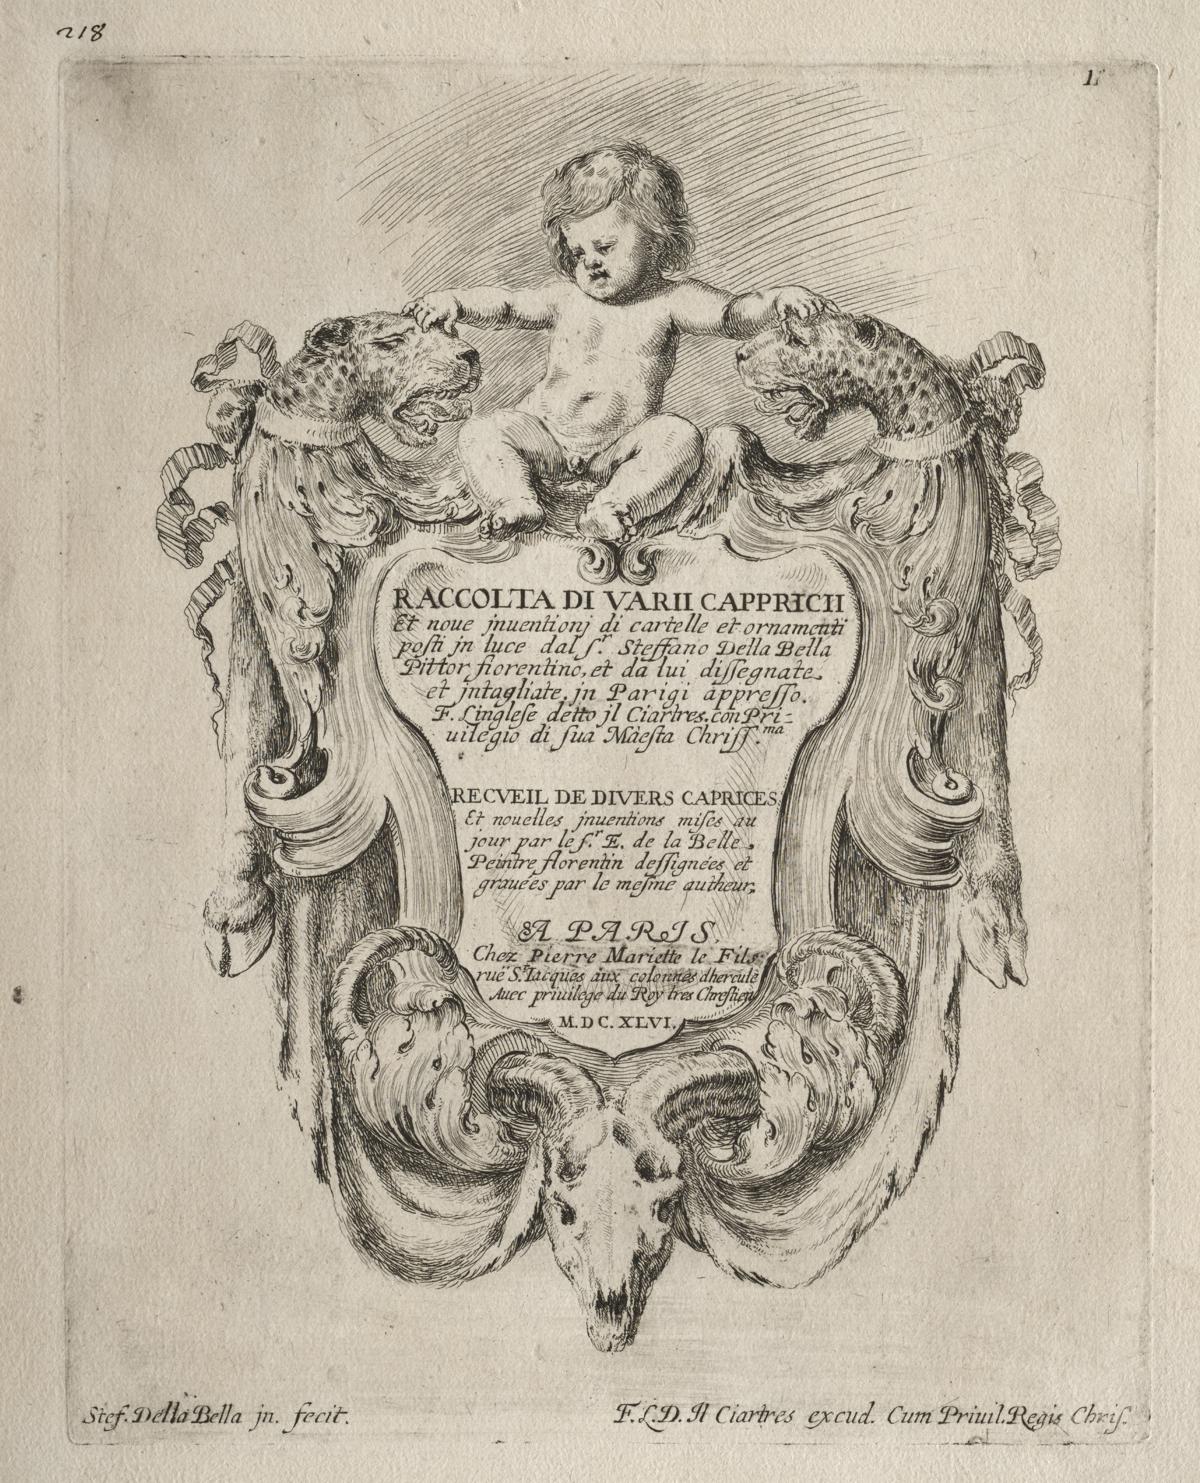 218
1
RACCOLTA DI VARII CAPPRICII
Et noue jnuentionj di cartelle et ornamenti
posti jn luce dal ſ.r Steffano Della Bella
Pittor fiorentino, et da lui diſſegnate
et jntagliate, jn Parigi appreſſo.
F. Lingleſe detto jl Ciartres. con Pri-
uilegio di ſua Maesta Chriſſ.ma
RECVEIL DE DIVERS CAPRICES
Et nouelles jnuentions miſes au
jour par le ſ.r E. de la Belle.
Peintre florentin deſſignées et
grauées par le meſme autheur.
A PARIS,
Chez Pierre Mariette le Fils
rue St Iacques aux colonnes dhercule
Auec priuilege du Roy tres Chreſtien
M.DC.XLVI.
Stef. Della Bella jn. fecit.
F.L.D. Il Ciartres excud. Cum Priuil. Regis Chriſ.